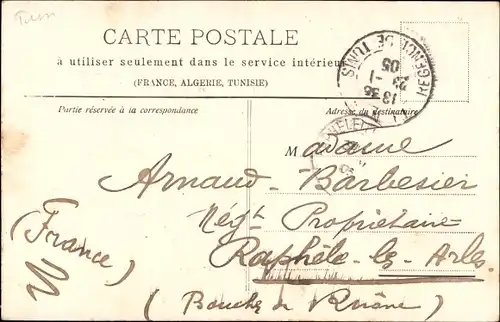 Tun
CARTE POSTALE
à utiliser seulement dans le service intérieur
(FRANCE, ALGERIE, TUNISIE)
REGENCE DE TUNIS
13 35
23 -1
05
Partie réservée à la correspondance
Adresse du destinataire
Madame
Arnaud-Barbesier
Négt Propriétaire
Raphèle-les-Arles
(Bouches du Rhône)
(France)